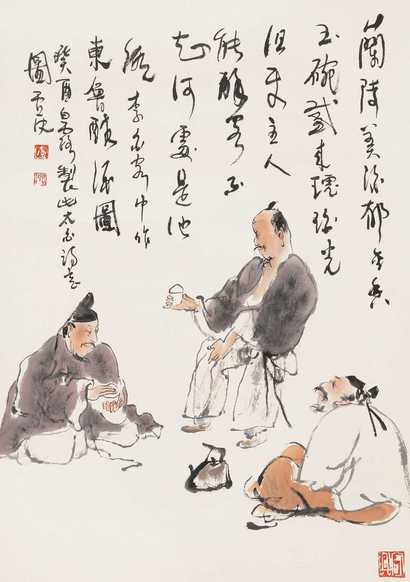 蘭陵美酒郁金香
玉碗盛来琥珀光
但使主人
能醉客不
知何處是他
鄉 李白客中作
東魯醉酒圖
癸酉白露製此太白詩意
圖